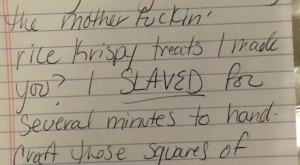 the mother fuckin'
rice krispy treats I made
you? I SLAVED for
several minutes to hand-
craft those squares of